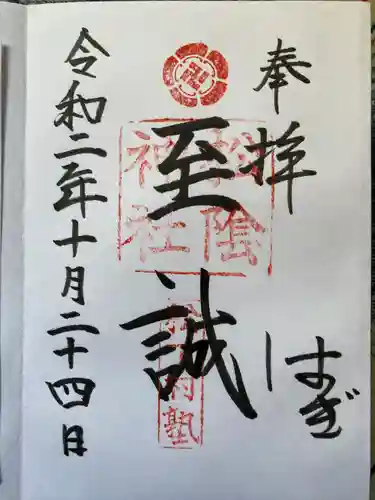 奉拝
はぎ
至誠
松陰
神社
松下村塾
令和二年十月二十四日